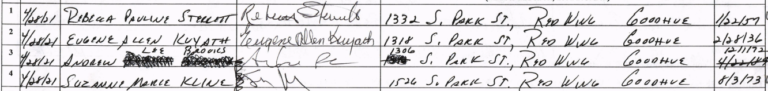 1 4/28/21 REBECCA PAULINE STERLETT 1332 S. PARK ST., RED WING GOODHUE 1/22/57
2 4/28/21 EUGENE ALLEN KUYATH Eugene Allen Kuyath 1318 S. PARK ST., RED WING GOODHUE 2/28/36
3 4/28/21 ANDREW LEE BROOKS 1306 S. PARK ST., RED WING GOODHUE 12/11/72
4 4/28/21 SUZANNE MARIE KLINE 1526 S. PARK ST., RED WING GOODHUE 8/3/73